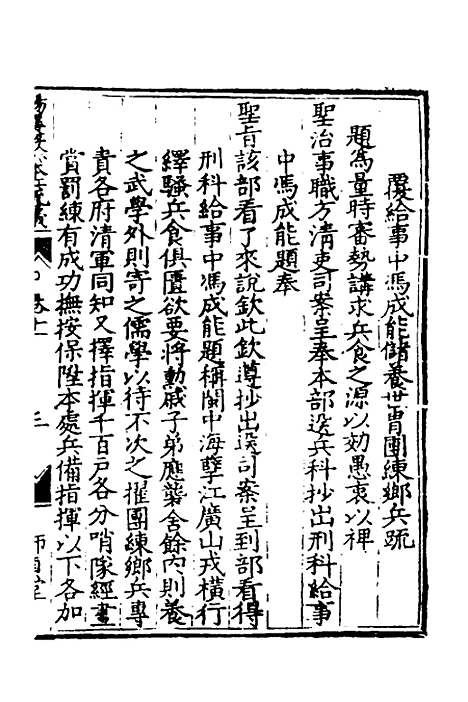 覆給事中馮成能儲養世胄團練鄉兵疏
題爲量時審勢講求兵食之源以効愚衷以裨
聖治事職方清吏司案呈奉本部送兵科抄出刑科給事
中馮成能題奉
聖旨該部看了來說欽此欽遵抄出送司案呈到部看得
刑科給事中馮成能題稱閩中海孽江廣山戎橫行
繹騷兵食俱匱欲要將勳戚子弟應襲舍餘內則養
之武學外則寄之儒學以待不次之擢團練鄉兵專
責各府清軍同知又擇指揮千百戶各分哨隊經畫
賞罰練有成功撫按保陞本處兵備指揮以下各加